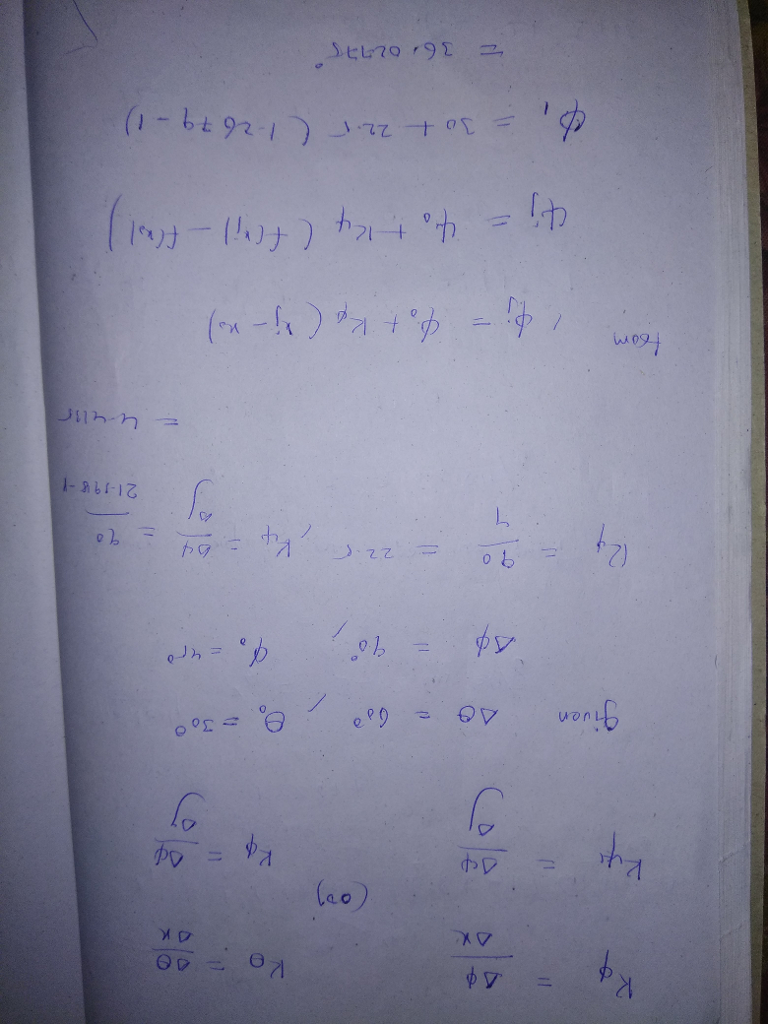 Kφ = Δφ/Δx Kθ = Δθ/Δx
(or)
Kψ = Δψ/Δy Kφ = Δφ/Δy
given Δθ = 60°, θ₀ = 30°
Δφ = 90°, φ₀ = 45°
Kφ = 90/4 = 22.5, Kψ = Δψ/Δy = 90/21.198-1
= 4.4115
from, φj = φ₀ + Kφ (xj - x₀)
ψj = ψ₀ + Kψ (f(xj) - f(x₀))
φ₁ = 30 + 22.5 (1.2679 - 1)
= 36.02775°